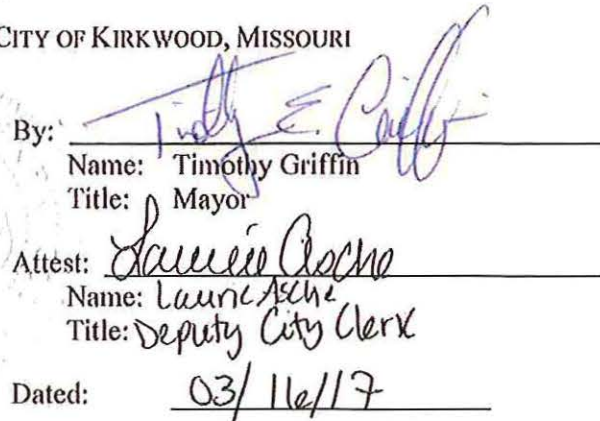 CITY OF KIRKWOOD, MISSOURI
By: Timothy E. Griffin
Name: Timothy Griffin
Title: Mayor
Attest: Laurie Asche
Name: Laurie Asche
Title: Deputy City Clerk
Dated: 03/16/17